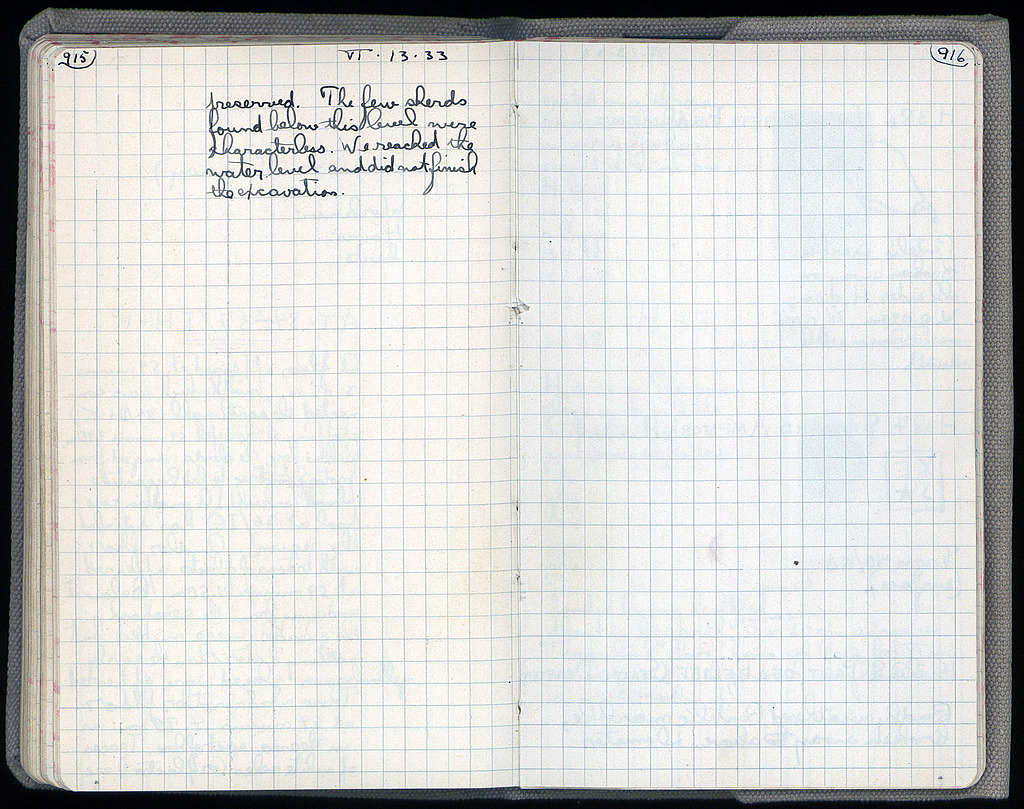 915
VI · 13 · 33
916
preserved. The few sherds
found below this level were
characterless. We reached the
water level and did not finish
the excavation.